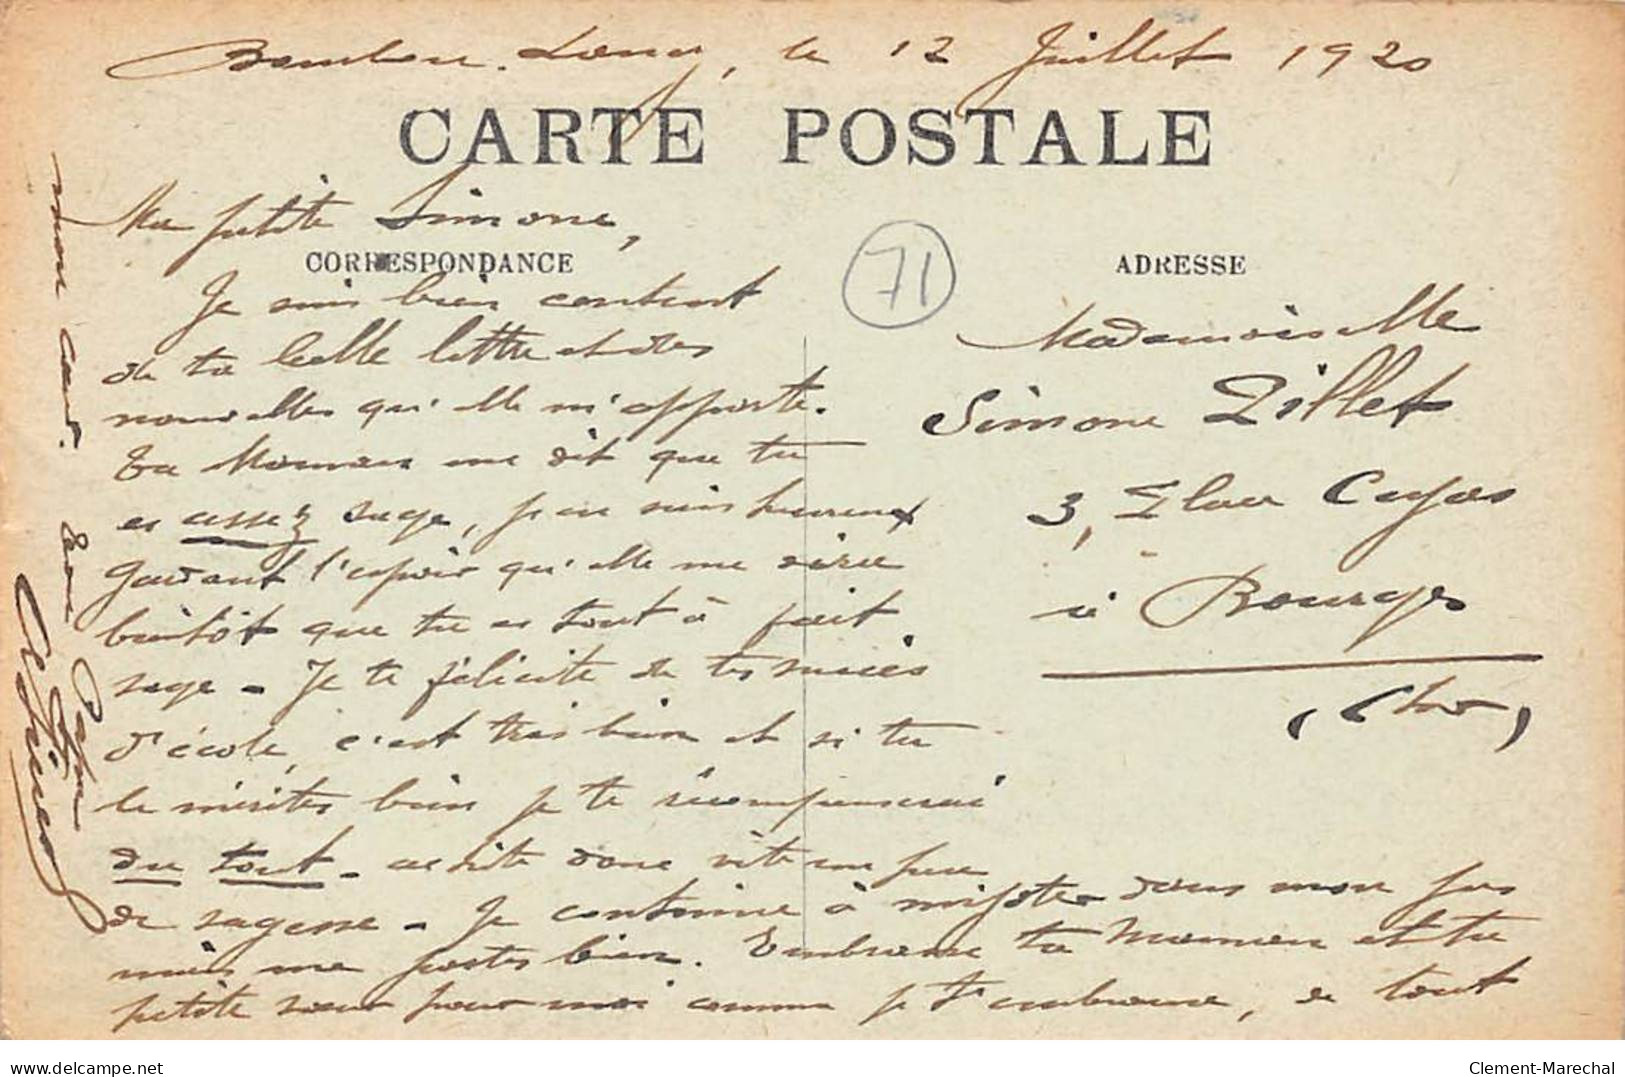 Bourbon-Lancy, le 12 Juillet 1920
CARTE POSTALE
Ma petite Simone,
CORRESPONDANCE
Je suis bien content
de ta belle lettre et des
nouvelles qu'elle m'apporte.
Ta Maman me dit que tu
es assez sage, j'en suis heureux
gardant l'espoir qu'elle me dira
bientôt que tu es tout à fait
sage - Je te félicite de tes succès
d'école, c'est très bien et si tu
le mérites bien je te récompenserai
du tout - donc vite un peu
de sagesse - Je continue à dans mon jus
mais me portes bien. Embrasse ta Maman et ta
petite sœur pour moi comme je t'embrasse, de tout
mon cœur. Ton Papa
71
ADRESSE
Mademoiselle
Simone Zillet
3, Place Cujas
à Bourges
(Cher)
delcampe.net
Clement-Marechal